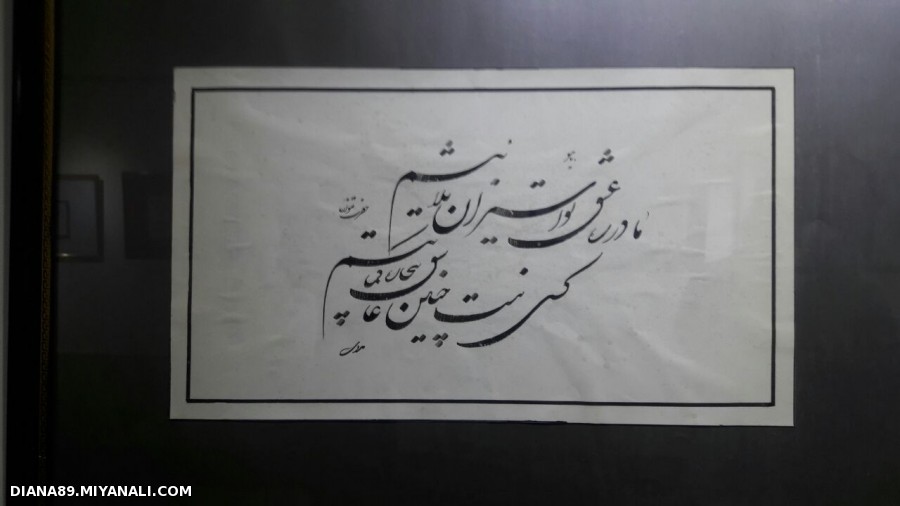 ما در ره عشق تو اسیران بلاییم
کس نیست چنین عاشق بیچاره که ماییم
DIANA89.MIYANALI.COM